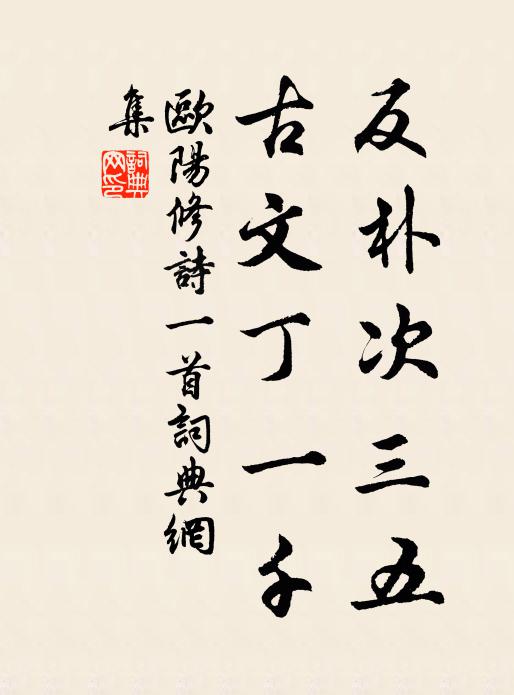 反朴次三五
古文丁一千
歐陽修詩一首詞典網
集
詞典
网印